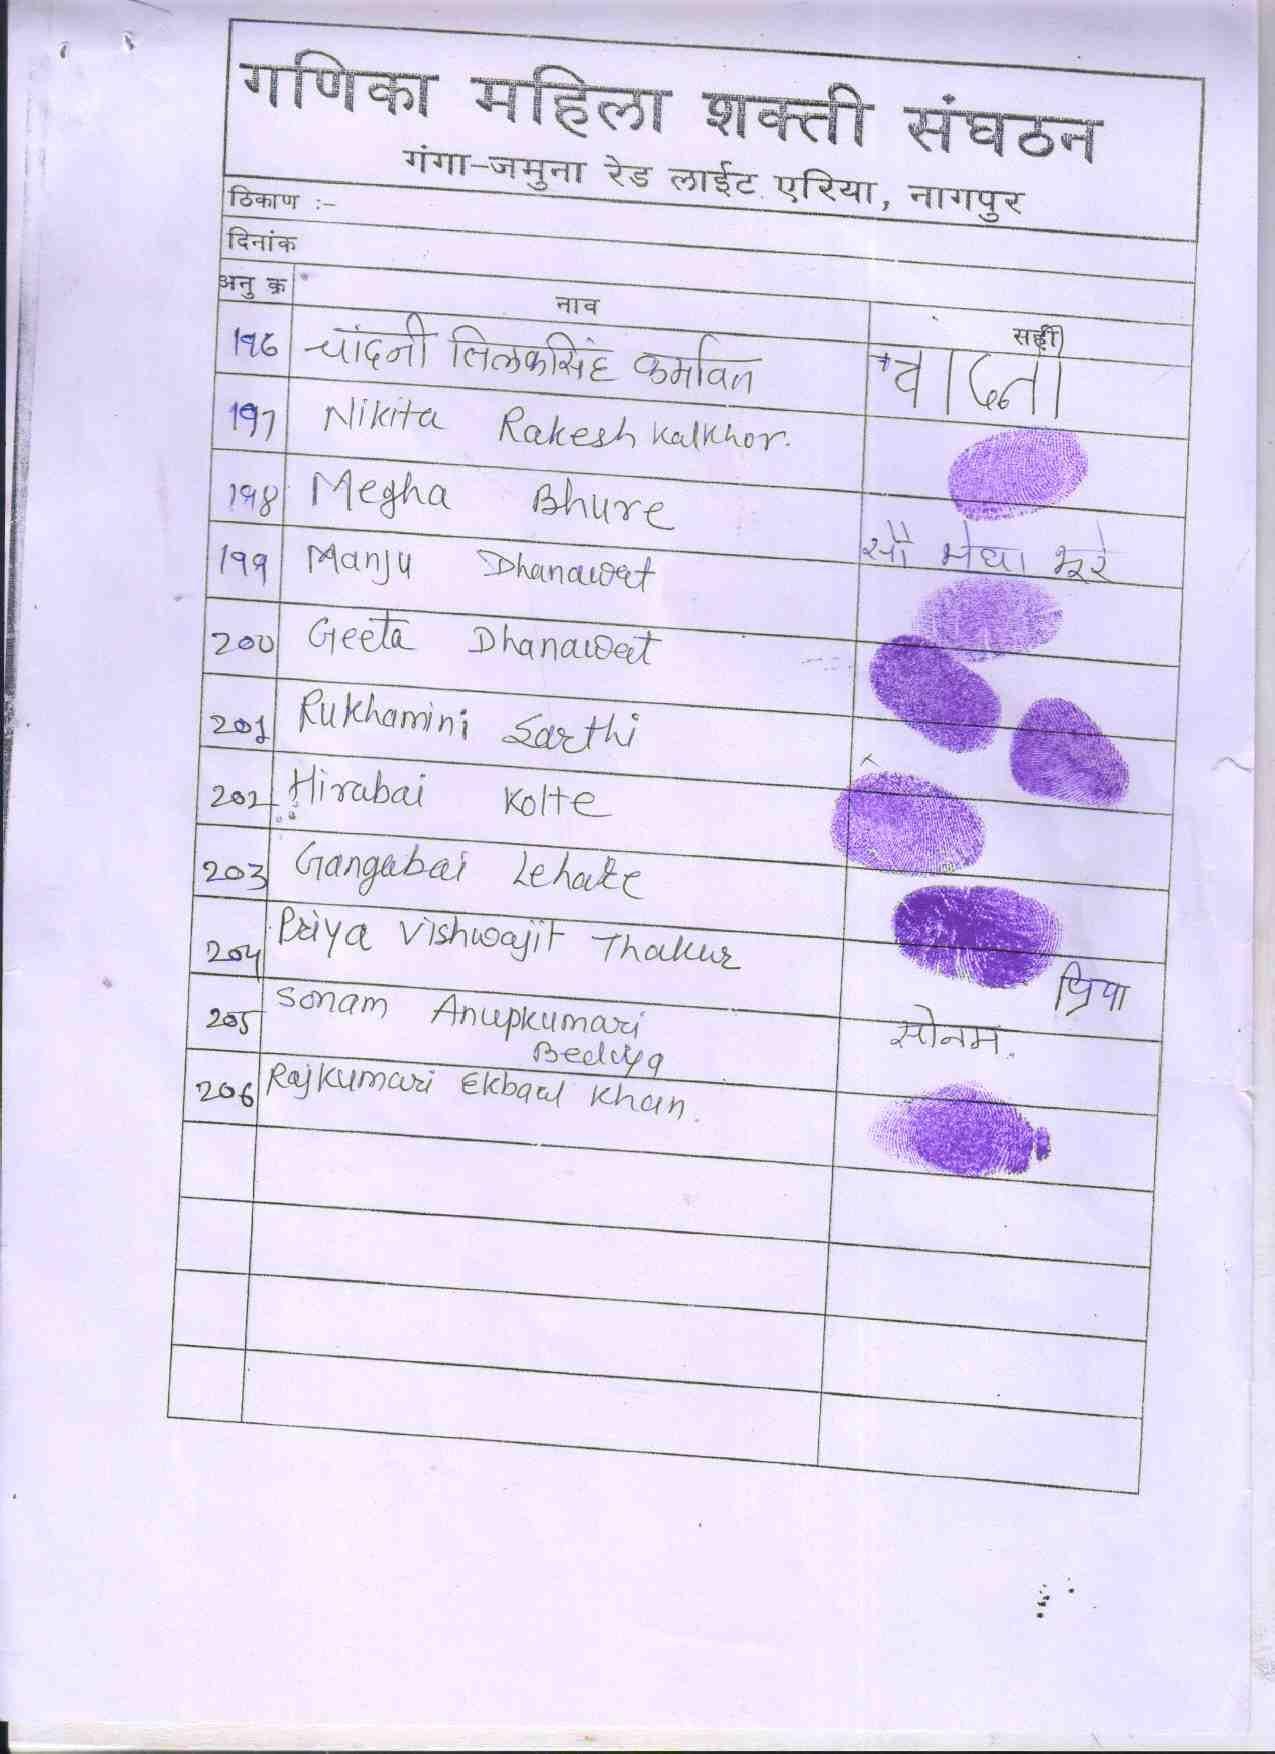 गणिका महिला शक्ती संघठन
गंगा-जमुना रेड लाईट एरिया, नागपुर
ठिकाण :-
दिनांक
अनु क्र नाव सही
१९६ चांदनी तिलकसिंह कर्मावत चांदनी
१९७ Nikita Rakesh Kalkhor.
१९८ Megha Bhure सौ मेघा भूरे
१९९ Manju Dhanawat
200 Geeta Dhanawat
201 Rukhamini Sarthi
202 Hirabai Kolte
203 Gangabai Lehate
204 Priya Vishwajit Thakur प्रिया
205 Sonam Anupkumari सोनम.
Bediya
206 Rajkumari Ekbaal Khan.